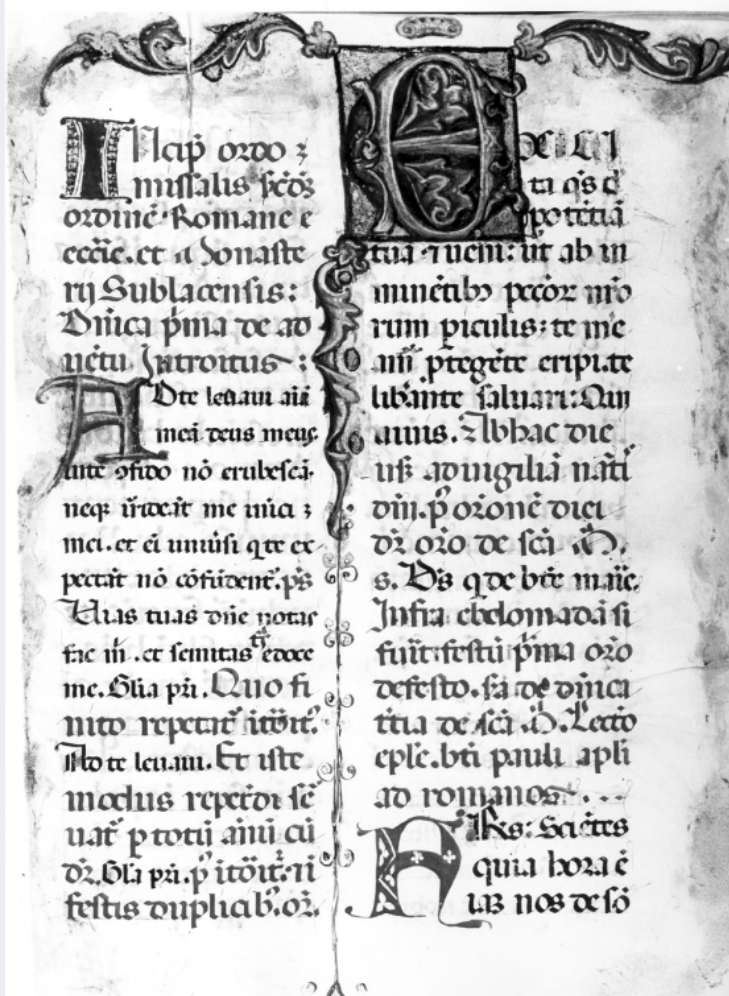 INcip ordo ⁊
missalis scdʒ
ordinē Romane e
eccīe. et Monaste
rij Sublacensis:
Dnica pma de ad
uētu Introitus:
AD te leuaui aīā
meā deus meus
in te ꝯfido nō erubescā.
neqʒ irrideāt me inimici
mei. et eī uniūsi q te ex
pectāt nō cōfūdent᷒. ps
Uias tuas dne notas
fac m. et semitas tuas edoce
me. Glia pri. Quo fi
nito repetat᷒ itōit᷒.
Ad te leuaui. Et iste
modus repetēdi sē
uat᷒ p totū annū cū
dr̄. Glia pri. p᷒ itōit᷒. n
festis duplicibʒ. or̄.
EXCITA
ta qs d
potētiā
tuā ⁊ ueni: ut ab in
minētibʒ pccōr nr̄o
rum piculis: te me
amr ptegēte eripi. te
libāte saluari: Qui
uiuis. Ab hac die
usqʒ ad uigiliā nati
dni. p᷒ orōnē diei
dr̄ oro de scā M.
s. Ds q de bte marie.
Infra ebdomadā si
fuit festū pma oro
de festo. sa de dnica
ttia de scā M. Lectō
eple. bti pauli apli
ad romanos.
FRs: Sciētes
quia hora ē
iaʒ nos de sō